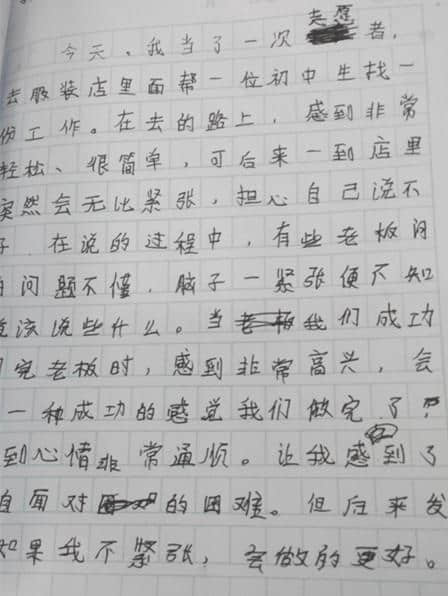 志愿
今天，我当了一次者，
去服装店里面帮一位初中生找一
份工作。在去的路上，感到非常
轻松、很简单，可后来一到店里
突然会无比紧张，担心自己说不
好．在说的过程中，有些老板问
问题不懂，脑子一紧张便不知
该说些什么。当我们成功
完老板时，感到非常高兴，会
一种成功的感觉我们做完了？
到心情非常通顺。让我感到了
自面对的困难。但后来发
如果我不紧张，会做的更好。